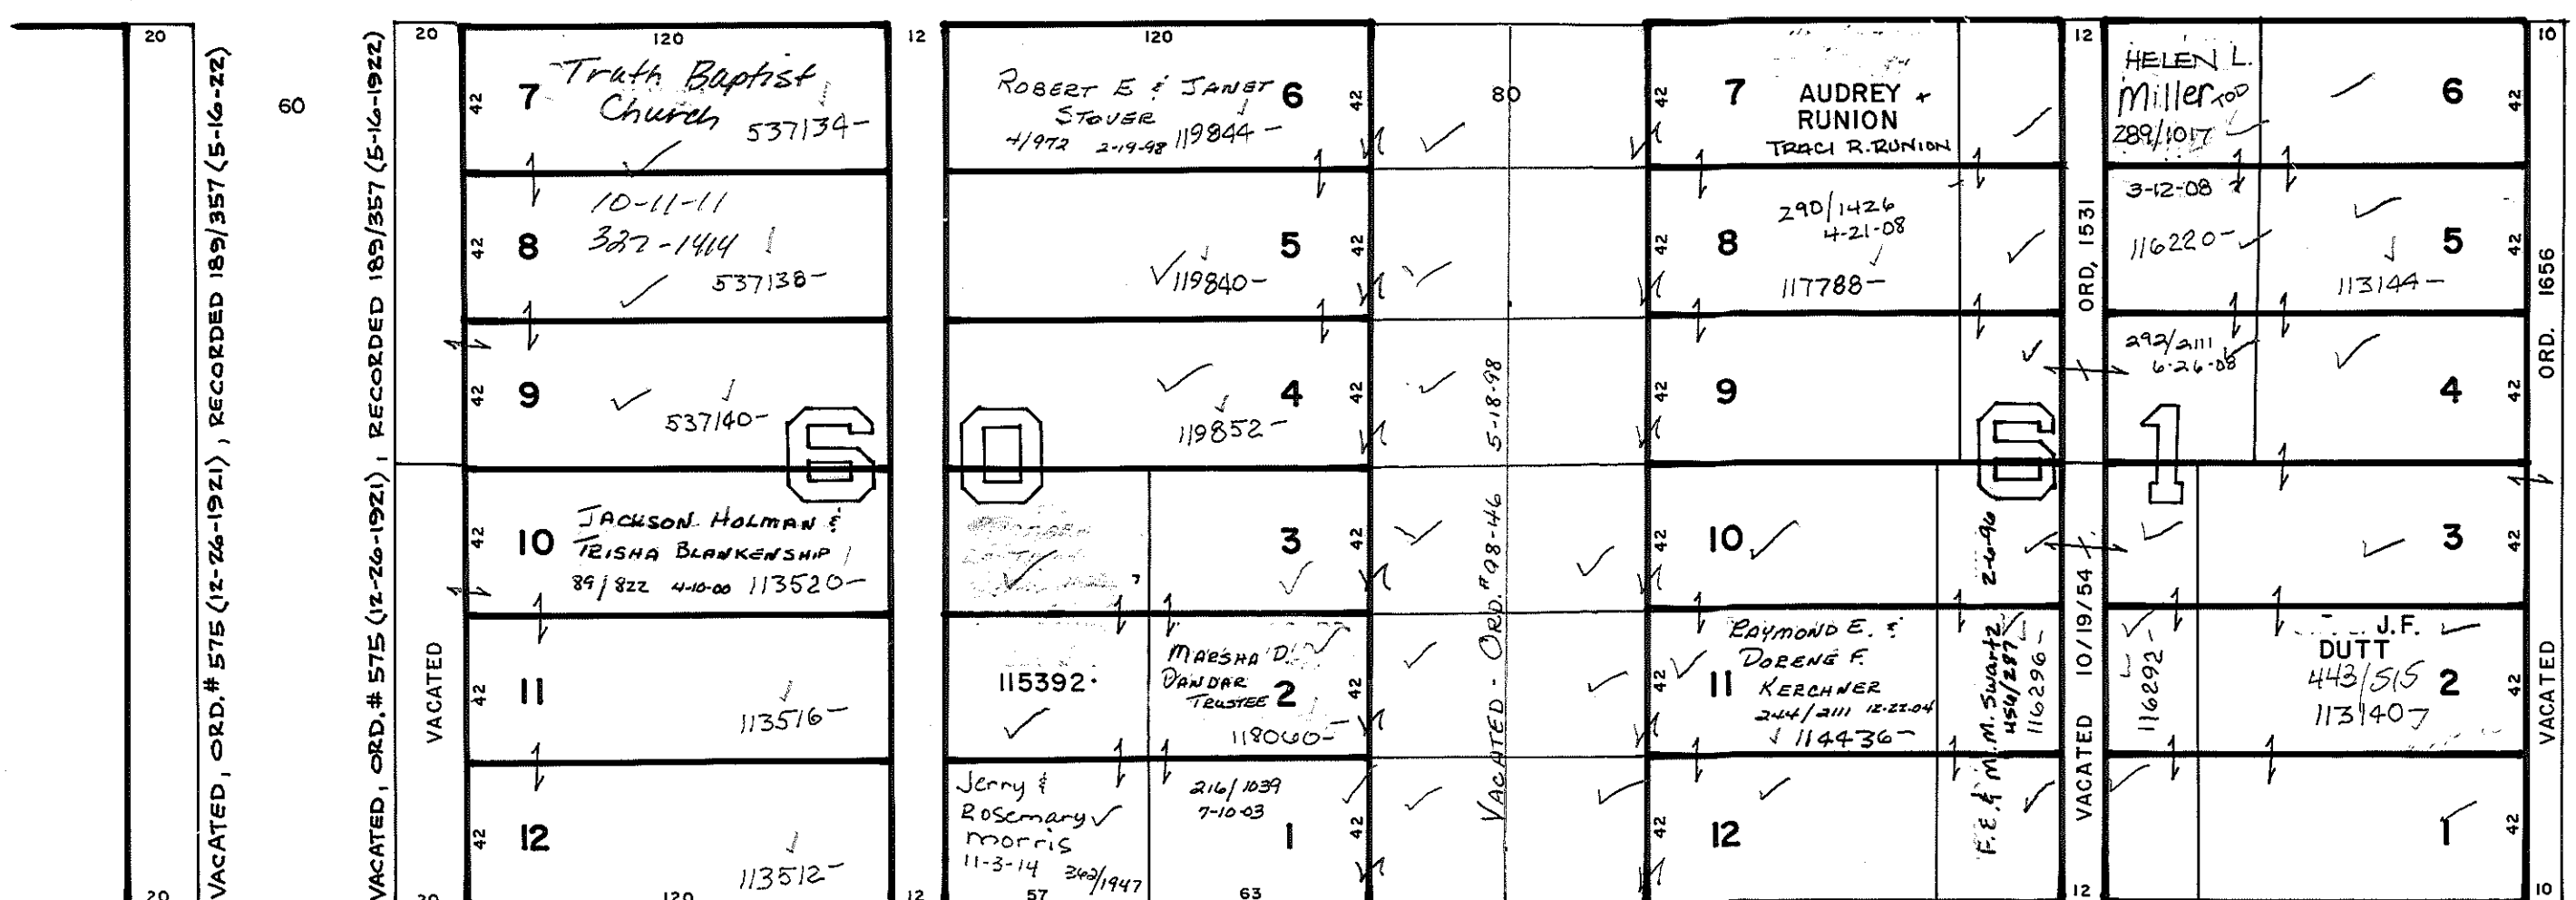 20
VACATED, ORD.# 575 (12-26-1921), RECORDED 189/357 (5-16-22)
20
60
VACATED, ORD.# 575 (12-26-1921), RECORDED 189/357 (5-16-1922)
20
VACATED
20
120
42
7
Truth Baptist
Church
537134-
42
8
10-11-11
327-1414
537138-
42
9
537140-
60
42
10
JACKSON HOLMAN &
TRISHA BLANKENSHIP
89/822 4-10-00 113520-
42
11
113516-
42
12
113512-
120
12
12
120
ROBERT E & JANET
STOVER
6
42
4/972 2-19-98 119844-
5
42
119840-
4
42
119852-
3
42
7
115392.
MARSHA D.
DANDAR
TRUSTEE 2
42
118060-
Jerry &
Rosemary
morris
11-3-14 362/1947
216/1039
7-10-03
1
42
57
63
80
VACATED - ORD.# 98-46 5-18-98
42
7
AUDREY +
RUNION
TRACI R. RUNION
42
8
290/1426
4-21-08
117788-
42
9
61
42
10
42
11
RAYMOND E. &
DORENE F.
KERCHNER
244/2111 12-22-04
114436-
42
12
F.E. & M.M. Swartz 2-6-96
456/287
116296-
12
ORD, 1531
VACATED 10/19/54
12
HELEN L.
Miller TOD
289/1017
6
42
3-12-08
116220-
5
42
113144-
292/2111
6-26-08
4
42
3
42
116292-
J.F.
DUTT
443/515
2
42
113140-
1
42
10
ORD. 1656
VACATED
10